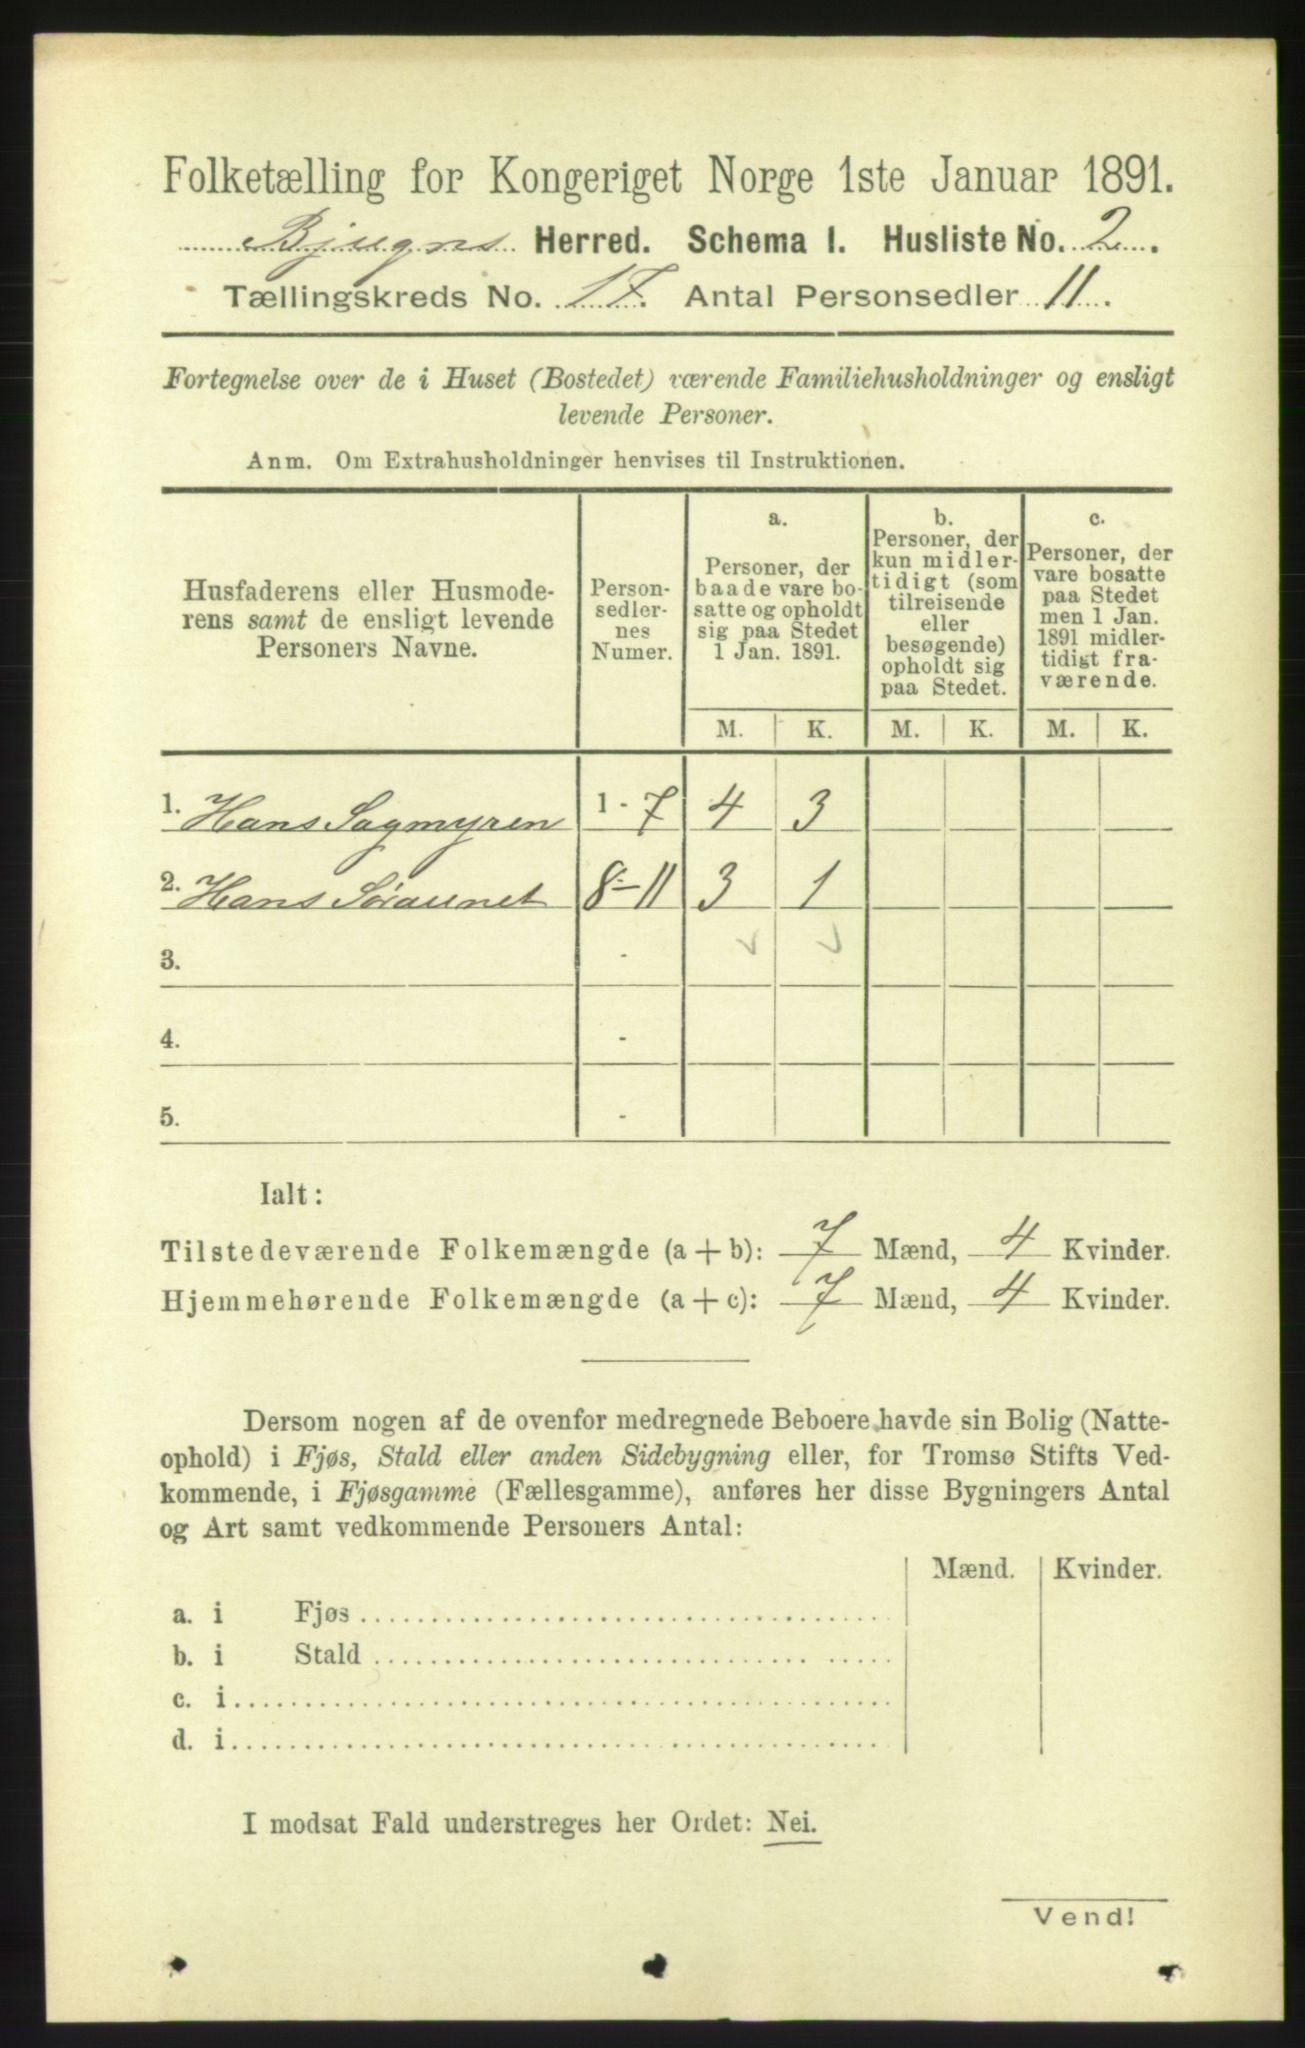 Folketælling for Kongeriget Norge 1ste Januar 1891.
Bjugns Herred. Schema I. Husliste No. 2.
Tællingskreds No. 17. Antal Personsedler 11.
Fortegnelse over de i Huset (Bostedet) værende Familiehusholdninger og ensligt
levende Personer.
Anm. Om Extrahusholdninger henvises til Instruktionen.
Husfaderens eller Husmode-
rens samt de ensligt levende
Personers Navne.
Person-
sedler-
nes
Numer.
a.
Personer, der
baade vare bo-
satte og opholdt
sig paa Stedet
1 Jan. 1891.
b.
Personer, der
kun midler-
tidigt (som
tilreisende
eller
besøgende)
opholdt sig
paa Stedet.
c.
Personer, der
vare bosatte
paa Stedet
men 1 Jan.
1891 midler-
tidigt fra-
værende.
M. K. M. K. M. K.
1. Hans Sagmyren 1 - 7 4 3
2. Hans Søraunet 8 - 11 3 1
3. -
4. -
5. -
Ialt:
Tilstedeværende Folkemængde (a + b): 7 Mænd, 4 Kvinder.
Hjemmehørende Folkemængde (a + c): 7 Mænd, 4 Kvinder.
Dersom nogen af de ovenfor medregnede Beboere havde sin Bolig (Natte-
ophold) i Fjøs, Stald eller anden Sidebygning eller, for Tromsø Stifts Ved-
kommende, i Fjøsgamme (Fællesgamme), anføres her disse Bygningers Antal
og Art samt vedkommende Personers Antal:
Mænd. Kvinder.
a. i Fjøs
b. i Stald
c. i
d. i
I modsat Fald understreges her Ordet: Nei.
Vend!